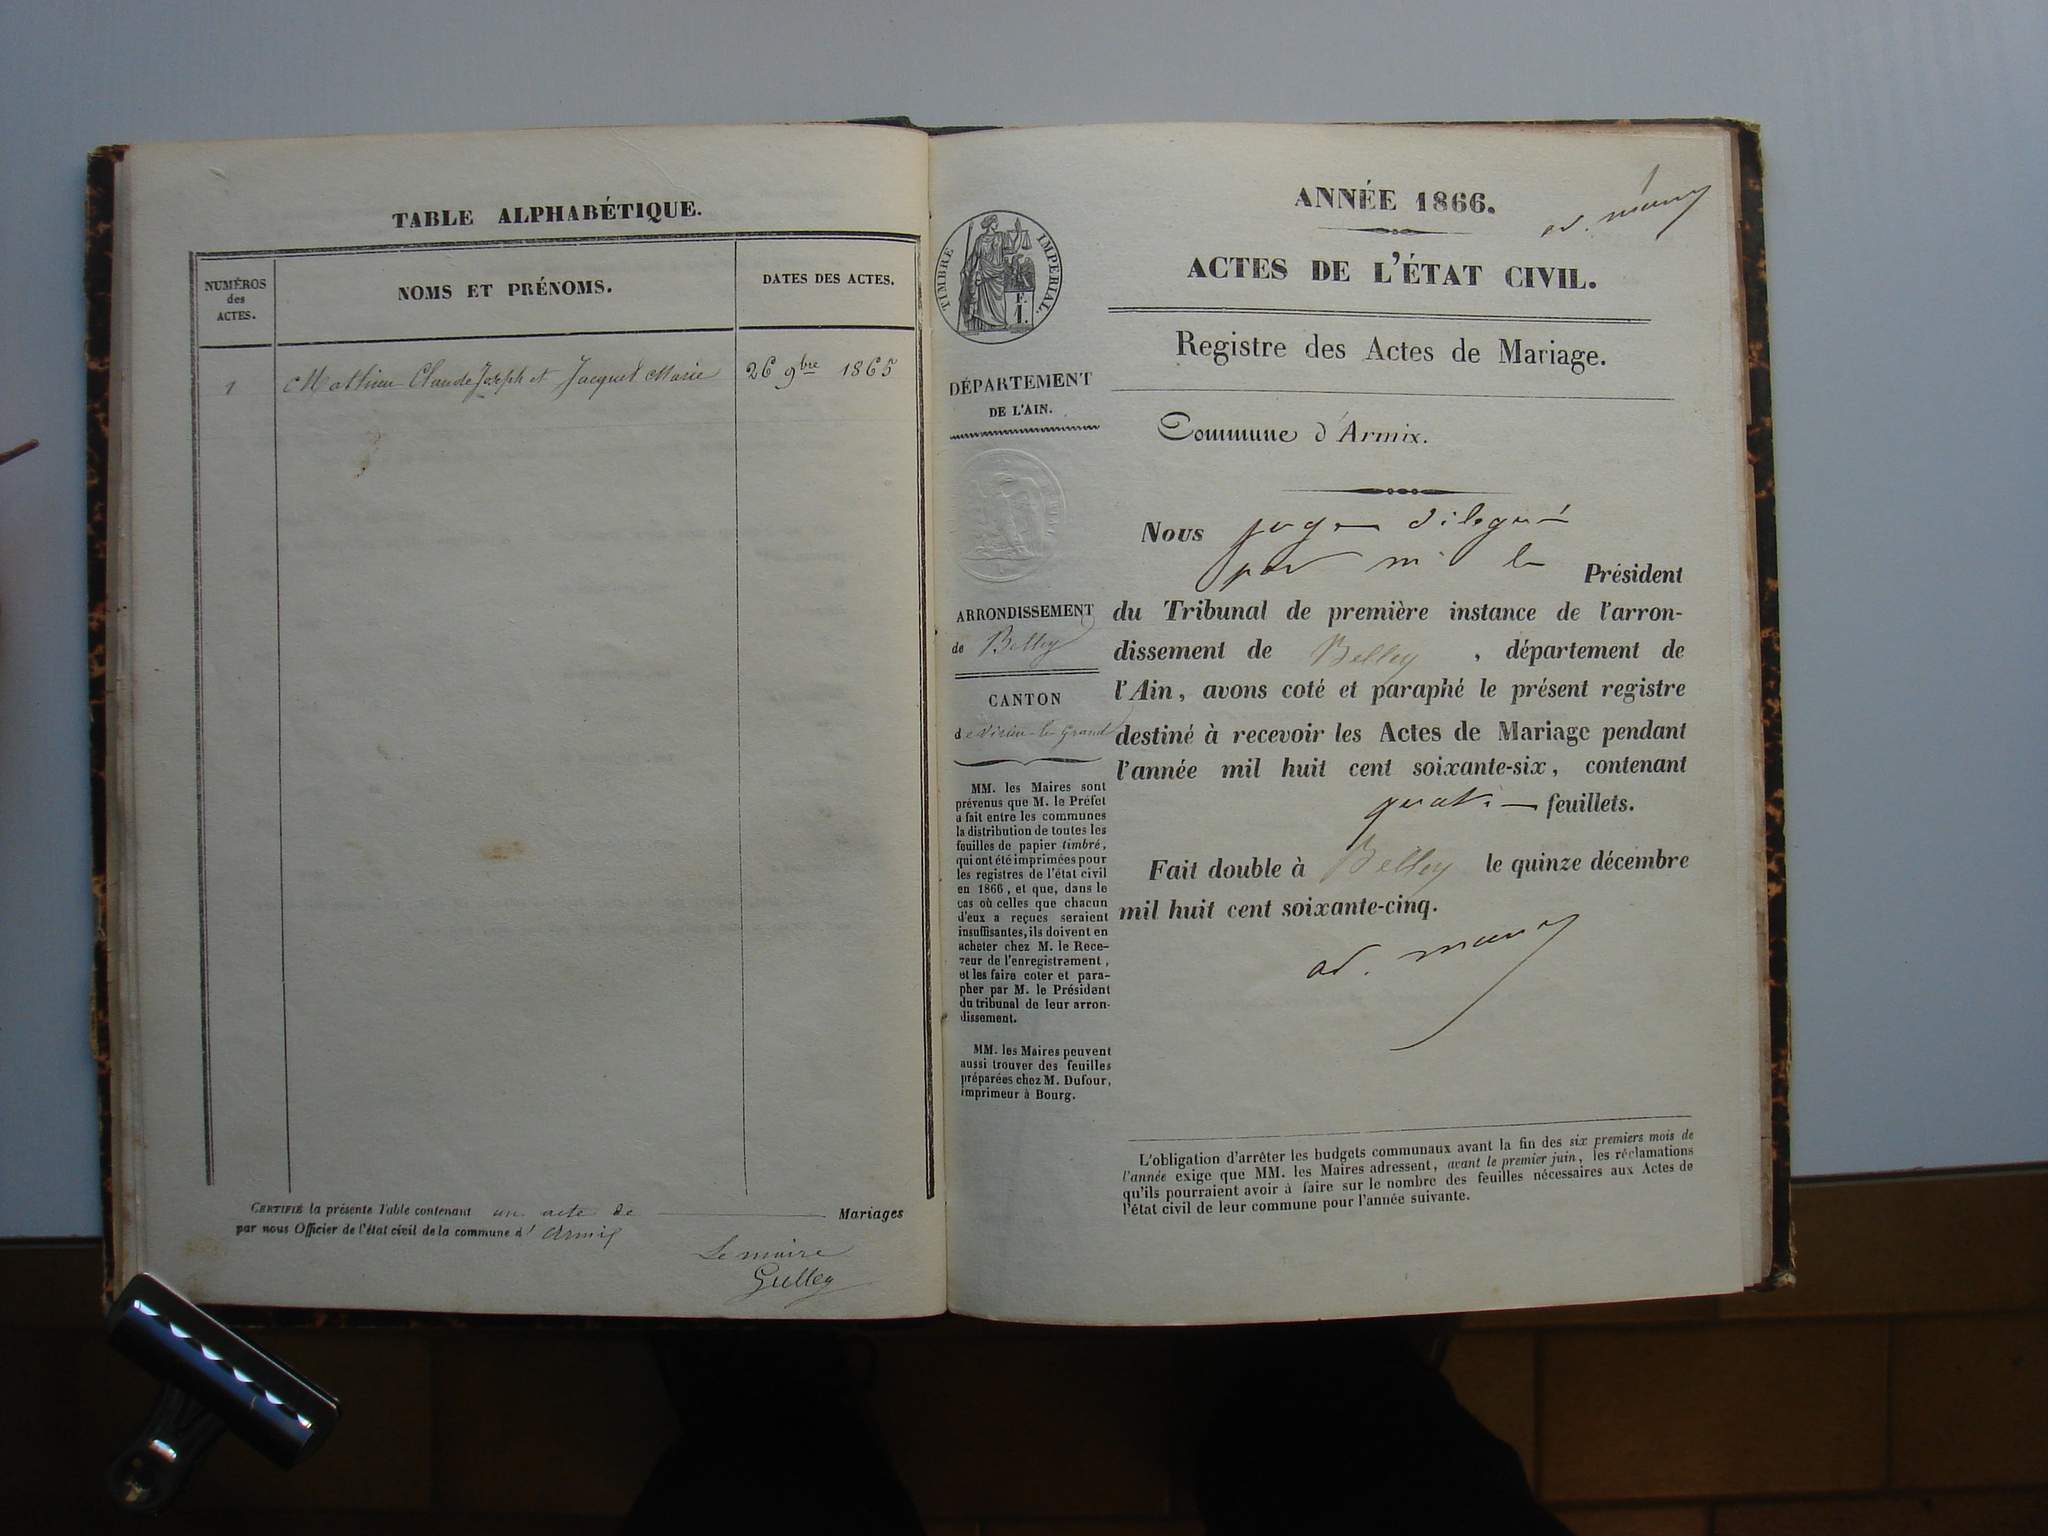 TABLE ALPHABÉTIQUE.
NUMÉROS
des
ACTES.
NOMS ET PRÉNOMS.
DATES DES ACTES.
1 Mathieu Claude Joseph et Jacquet Marie 26 9bre 1865
CERTIFIÉ la présente Table contenant un acte de Mariages
par nous Officier de l'état civil de la commune d'Armix
Le maire
Gulley
ANNÉE 1866.
ACTES DE L'ÉTAT CIVIL.
Registre des Actes de Mariage.
TIMBRE IMPERIAL.
F.
1.
DÉPARTEMENT
DE L'AIN.
ARRONDISSEMENT
de Belley
CANTON
de Virieu-le-Grand
MM. les Maires sont
prévenus que M. le Préfet
a fait entre les communes
la distribution de toutes les
feuilles de papier timbré,
qui ont été imprimées pour
les registres de l'état civil
en 1866, et que, dans le
cas où celles que chacun
d'eux a reçues seraient
insuffisantes, ils doivent en
acheter chez M. le Rece-
veur de l'enregistrement,
et les faire coter et para-
pher par M. le Président
du tribunal de leur arron-
dissement.
MM. les Maires peuvent
aussi trouver des feuilles
préparées chez M. Dufour,
imprimeur à Bourg.
Commune d'Armix.
Nous juge délégué
par m le Président
du Tribunal de première instance de l'arron-
dissement de Belley, département de
l'Ain, avons coté et paraphé le présent registre
destiné à recevoir les Actes de Mariage pendant
l'année mil huit cent soixante-six, contenant
quatre feuillets.
Fait double à Belley le quinze décembre
mil huit cent soixante-cinq.
L'obligation d'arrêter les budgets communaux avant la fin des six premiers mois de
l'année exige que MM. les Maires adressent, avant le premier juin, les réclamations
qu'ils pourraient avoir à faire sur le nombre des feuilles nécessaires aux Actes de
l'état civil de leur commune pour l'année suivante.